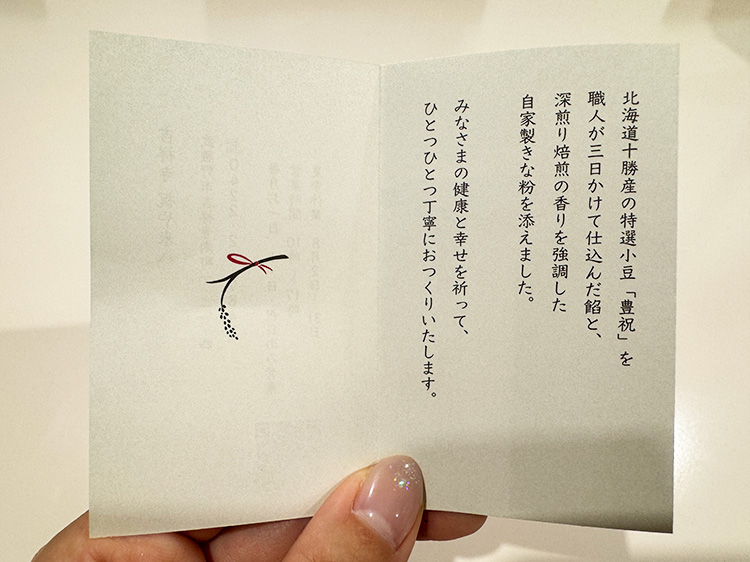 北海道十勝産の特選小豆「豊祝」を
職人が三日かけて仕込んだ餡と、
深煎り焙煎の香りを強調した
自家製きな粉を添えました。
みなさまの健康と幸せを祈って、
ひとつひとつ丁寧におつくりいたします。